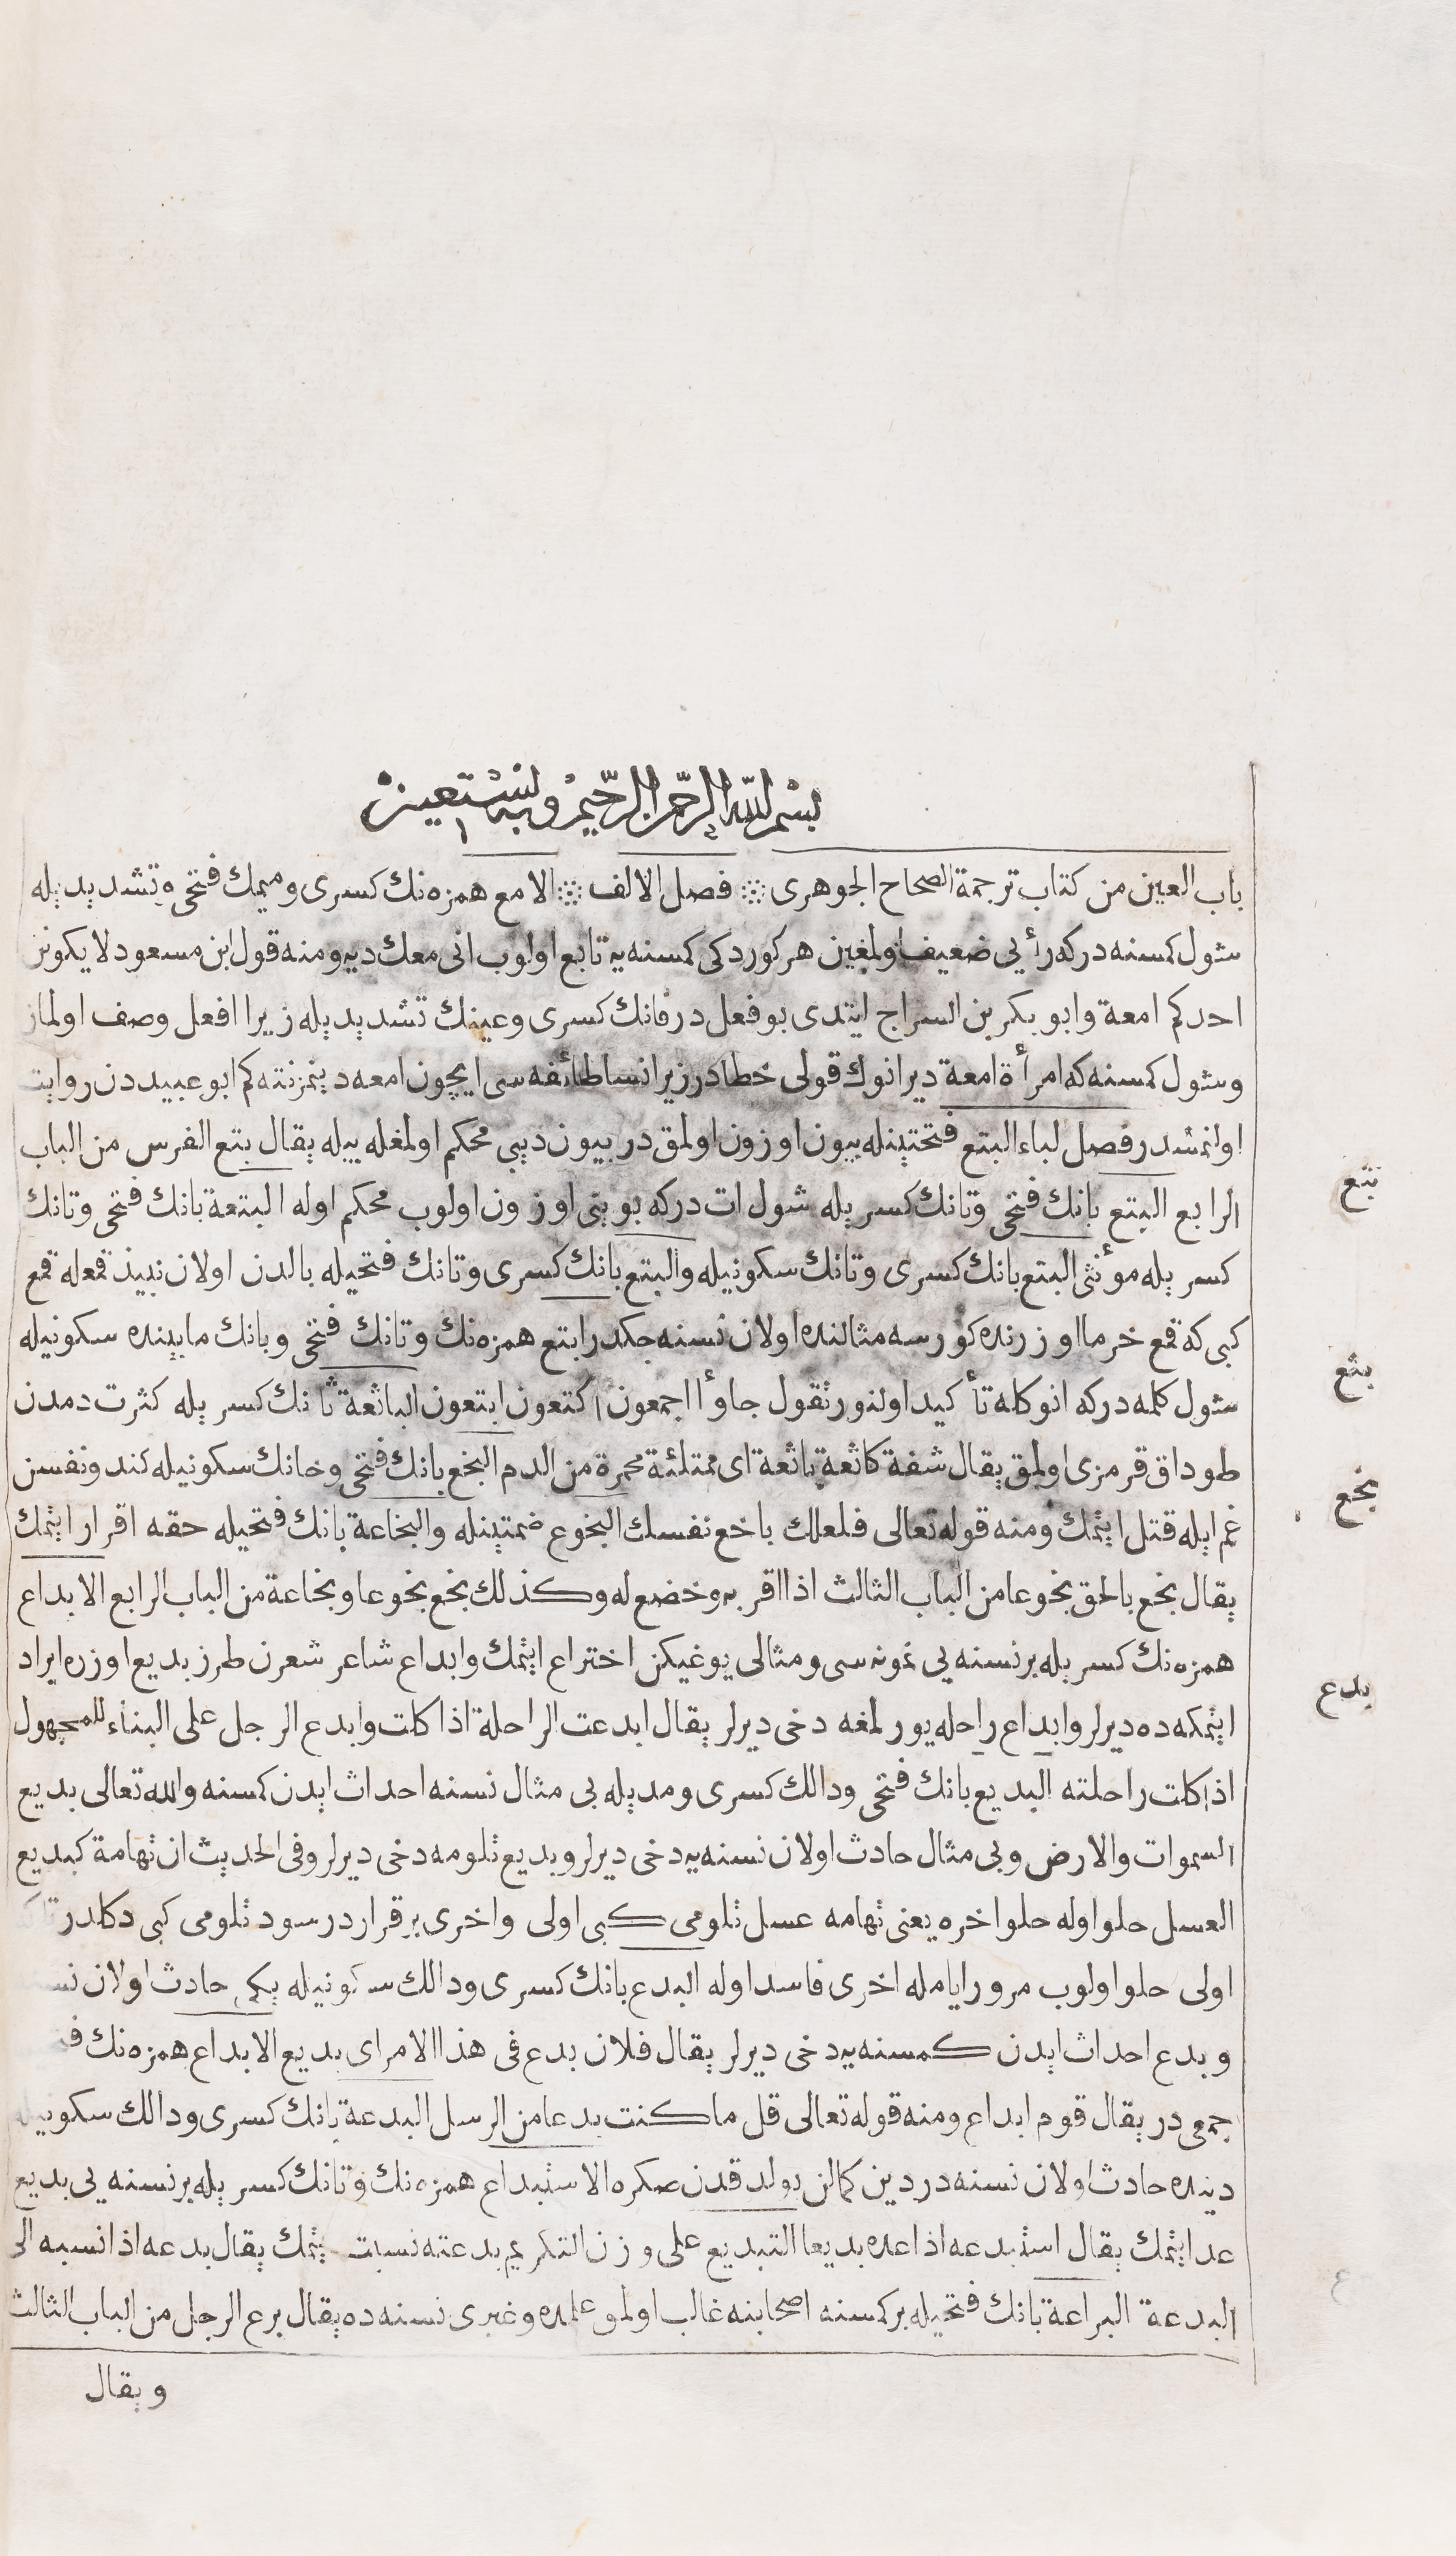 بسم الله الرحمن الرحيم وبه نستعين
باب العين من كتاب ترجمة الصحاح الجوهرى ፨ فصل الالف ፨ الامع همزه نك كسرى وميمك فتحى وتشديد يله
شول كمسنه دركه رأيى ضعيف اولمغين هر كوردكى كمسنه يه تابع اولوب انى معك ديه ومنه قول ابن مسعود لا يكونن
احدكم امعة وابو بكر بن السراج ايتدى بو فعل در فانك كسرى وعينك تشديد يله زيرا افعل وصف اولماز
وشول كمسنه كه امرأة امعة دير انوك قولى خطادر زيرا نسا طائفه سى ايچون امعه دينمز نته كم ابو عبيددن روايت
اولنمشدر فصل لباء البتع فتحتينله بيون اوزون اولمق در بيون ديبى محكم اولمغله بيله يقال بتع الفرس من الباب
الرابع البتع بانك فتحى وتانك كسر يله شول ات دركه بوينى اوزون اولوب محكم اوله البتعة بانك فتحى وتانك
كسر يله مؤنثى البتع بانك كسرى وتانك سكونيله والبتع بانك كسرى وتانك فتحيله بالدن اولان نبيذ قمعله قمع
كبى كه قمع خرما اوزرنده كورسه مثالنده اولان نسنه جكدر ابتع همزه نك وتانك فتحى وبانك مابينده سكونيله
شول كلمه دركه انوكله تأكيد اولنور تقول جاوأ اجمعون اكتعون ابتعون الباثعة ثانك كسر يله كثرت دمدن
طوداق قرمزى اولمق يقال شفة كاثعة باثعة اى ممتلئة محمرة من الدم البخع بانك فتحى وخانك سكونيله كندو نفسن
غم ايله قتل ايتمك ومنه قوله تعالى فلعلك باخع نفسك البخوع ضمتينله والبخاعة بانك فتحيله حقه اقرار ايتمك
يقال بخع بالحق بخوعا من الباب الثالث اذا اقر به وخضع له وكذلك بخع بخوعا وبخاعة من الباب الرابع الابداع
همزه نك كسر يله بر نسنه يى نمونه سى ومثالى يوغيكن اختراع ايتمك وابداع شاعر شعرن طرز بديع اوزره ايراد
ايتمكه ده ديرلر وابداع راحله يورلمغه دخى ديرلر يقال ابدعت الراحلة اذا كلت وابدع الرجل على البناء للمجهول
اذا كلت راحلته البديع بانك فتحى ودالك كسرى ومد يله بى مثال نسنه احداث ايدن كمسنه والله تعالى بديع
السموات والارض وبى مثال حادث اولان نسنه يه دخى ديرلر وبديع تلومه دخى ديرلر وفى الحديث ان تهامة كبديع
العسل حلو اوله حلو اخره يعنى تهامه عسل تلومى كبى اولى واخرى برقراردر سود تلومى كبى دكلدر تاكه
اولى حلو اولوب مرور ايامله اخرى فاسد اوله البدع بانك كسرى ودالك سكونيله يكى حادث اولان
وبدع احداث ايدن كمسنه يه دخى ديرلر يقال فلان بدع فى هذا الامر اى بديع الابداع همزه نك
جمعى در يقال قوم ابداع ومنه قوله تعالى قل ما كنت بدعا من الرسل البدعة بانك كسرى ودالك سكونيله
دينده حادث اولان نسنه در دين كمالن بولدقدن صكره الاستبداع همزه نك وتانك كسر يله بر نسنه يى بديع
عد ايتمك يقال استبدعه اذا عده بديعا التبديع على وزن التكريم بدعته نسبت ايتمك يقال بدعه اذا نسبه الى
البدعة البراعة بانك فتحيله بر كمسنه اصحابنه غالب اولمق علمده وغيرى نسنه ده يقال برع الرجل من الباب الثالث
ويقال
بتع
بثع
بخع
بدع